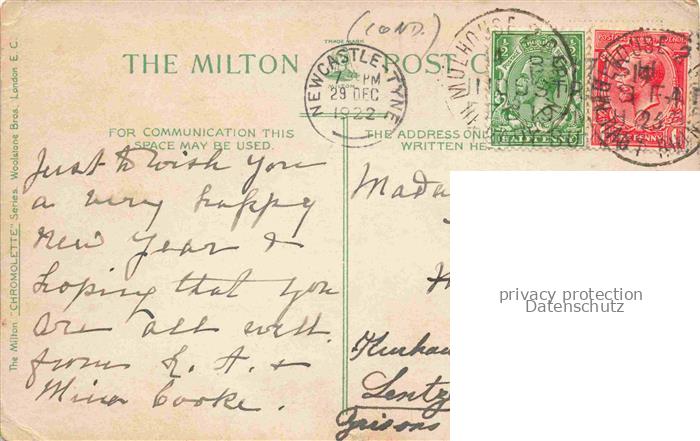 (COND.)
TRADE MARK
THE MILTON POST-C
NEWCASTLE-TYNE
7 - PM
29 DEC
1922
FOR COMMUNICATION THIS
SPACE MAY BE USED.
THE ADDRESS ON
WRITTEN HE
Just to wish you
a very happy
New Year &
hoping that you
are all well.
from
Mina Cooke.
Mada
Kurhau
Lentz
Grisons
privacy protection
Datenschutz
The Milton "CHROMOLETTE" Series. Woolstone Bros., London E.C.